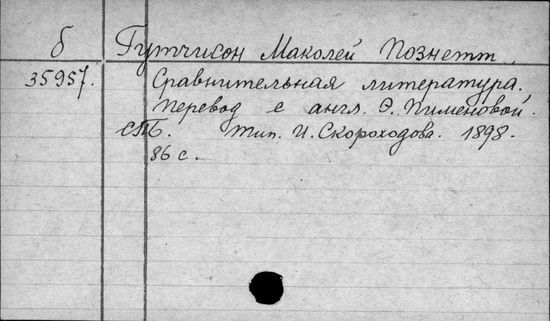 б Гутчисон Маколей Познетт.
35957. Сравнительная литература.
Перевод с англ. Э. Пименовой.
СПБ. Тип. И. Скороходова. 1898.
86 с.